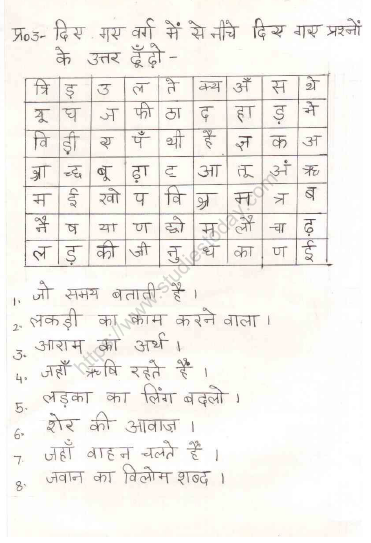 प्र०3- दिए गए वर्ग में से नीचे दिए गए प्रश्नों
के उत्तर ढूँढो -
त्रि ड़ उ ल ते क्य अँ स थे
यू घ ज फी ठा द हा ड़ मे
वि ड़ी स पँ थी है ज्ञ क अ
श्रा द्ध बू ढ़ा ट आ तू अं ऋ
म ई खो प वि श्र म त्र ब
नै ष या ण ढो म लौ चा ढ़
ल ड़ की जी नु धे का ण ई
1. जो समय बताती है ।
2. लकड़ी का काम करने वाला ।
3. आराम का अर्थ ।
4. जहाँ ऋषि रहते हैं ।
5. लड़का का लिंग बदलो ।
6. शेर की आवाज़ ।
7. जहाँ वाहन चलते हैं ।
8. जवान का विलोम शब्द ।
https://www.studiestoday.com